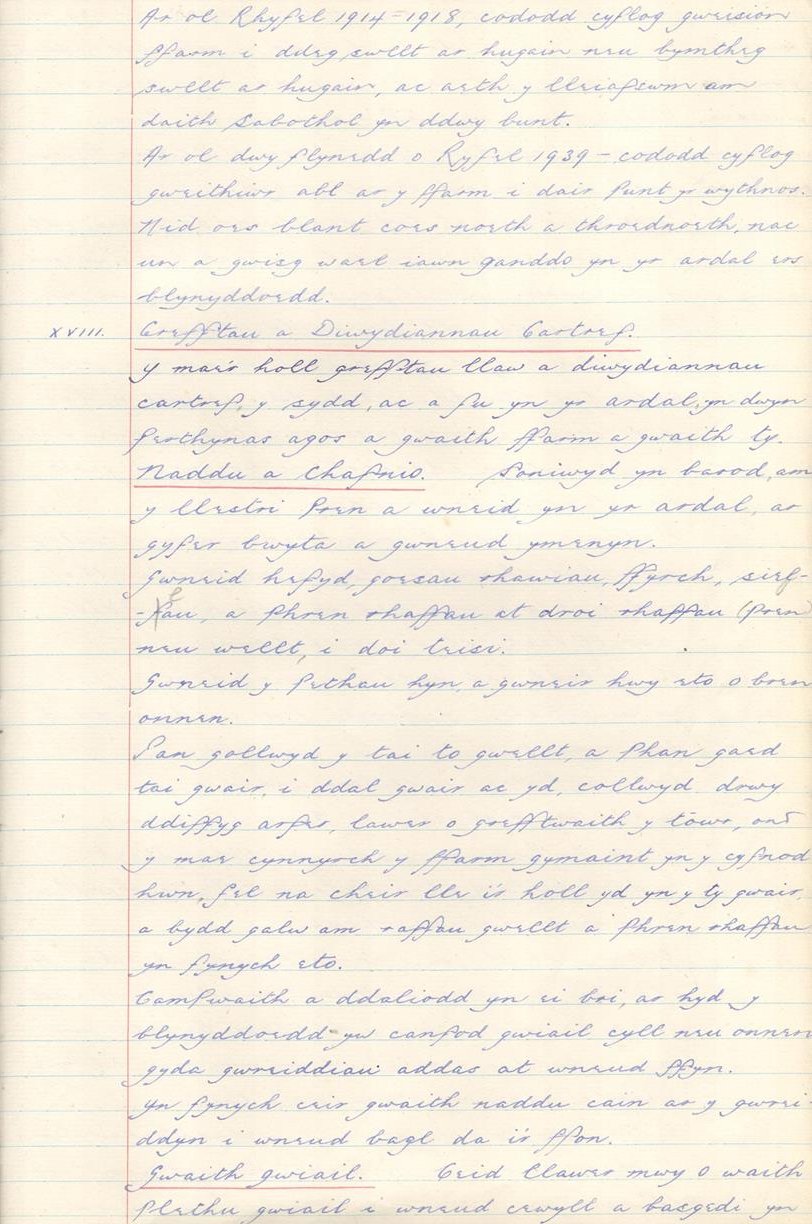 Ar ol Rhyfel 1914-1918, cododd cyflog gweision
ffarm i ddeg swllt ar hugain neu bymtheg
swllt ar hugain, ac aeth y lleiafswm am
daith Sabothol yn ddwy bunt.
Ar ol dwy flynedd o Ryfel 1939 - cododd cyflog
gweithiwr abl ar y ffarm i dair punt yr wythnos.
Nid oes blant coes noeth a throednoeth, nac
un a gwisg wael iawn ganddo yn yr ardal ers
blynyddoedd.
XVIII. Crefftau a Diwydiannau Cartref.
Y mae'r holl grefftau llaw a diwydiannau
cartref, y sydd, ac a fu yn yr ardal, yn dwyn
perthynas agos a gwaith ffarm a gwaith ty.
Naddu a Chafnio. Soniwyd yn barod, am
y llestri pren a wneid yn yr ardal, ar
gyfer bwyta a gwneud ymenyn.
Gwneid hefyd, goesau rhawiau, ffyrch, sief-
-fau, a phren rhaffau at droi rhaffau (pren)
neu wellt, i doi teisi.
Gwneid y pethau hyn, a gwneir hwy eto o bren
onnen.
Pan gollwyd y tai to gwellt, a phan gaed
tai gwair, i ddal gwair ac yd, collwyd, drwy
ddiffyg arfer, lawer o grefftwaith y töwr, ond
y mae cynnyrch y ffarm gymaint yn y cyfnod
hwn, fel na cheir lle i'r holl yd yn y ty gwair,
a bydd galw am raffau gwellt a phren rhaffau
yn fynych eto.
Campwaith a ddaliodd yn ei bri, ar hyd y
blynyddoedd yw canfod gwiail cyll neu onnen
gyda gwreiddiau addas at wneud ffyn.
Yn fynych ceir gwaith naddu cain ar y gwrei-
ddyn i wneud bagl da i'r ffon.
Gwaith gwiail. Ceid llawer mwy o waith
plethu gwiail i wneud cewyll a basgedi yn